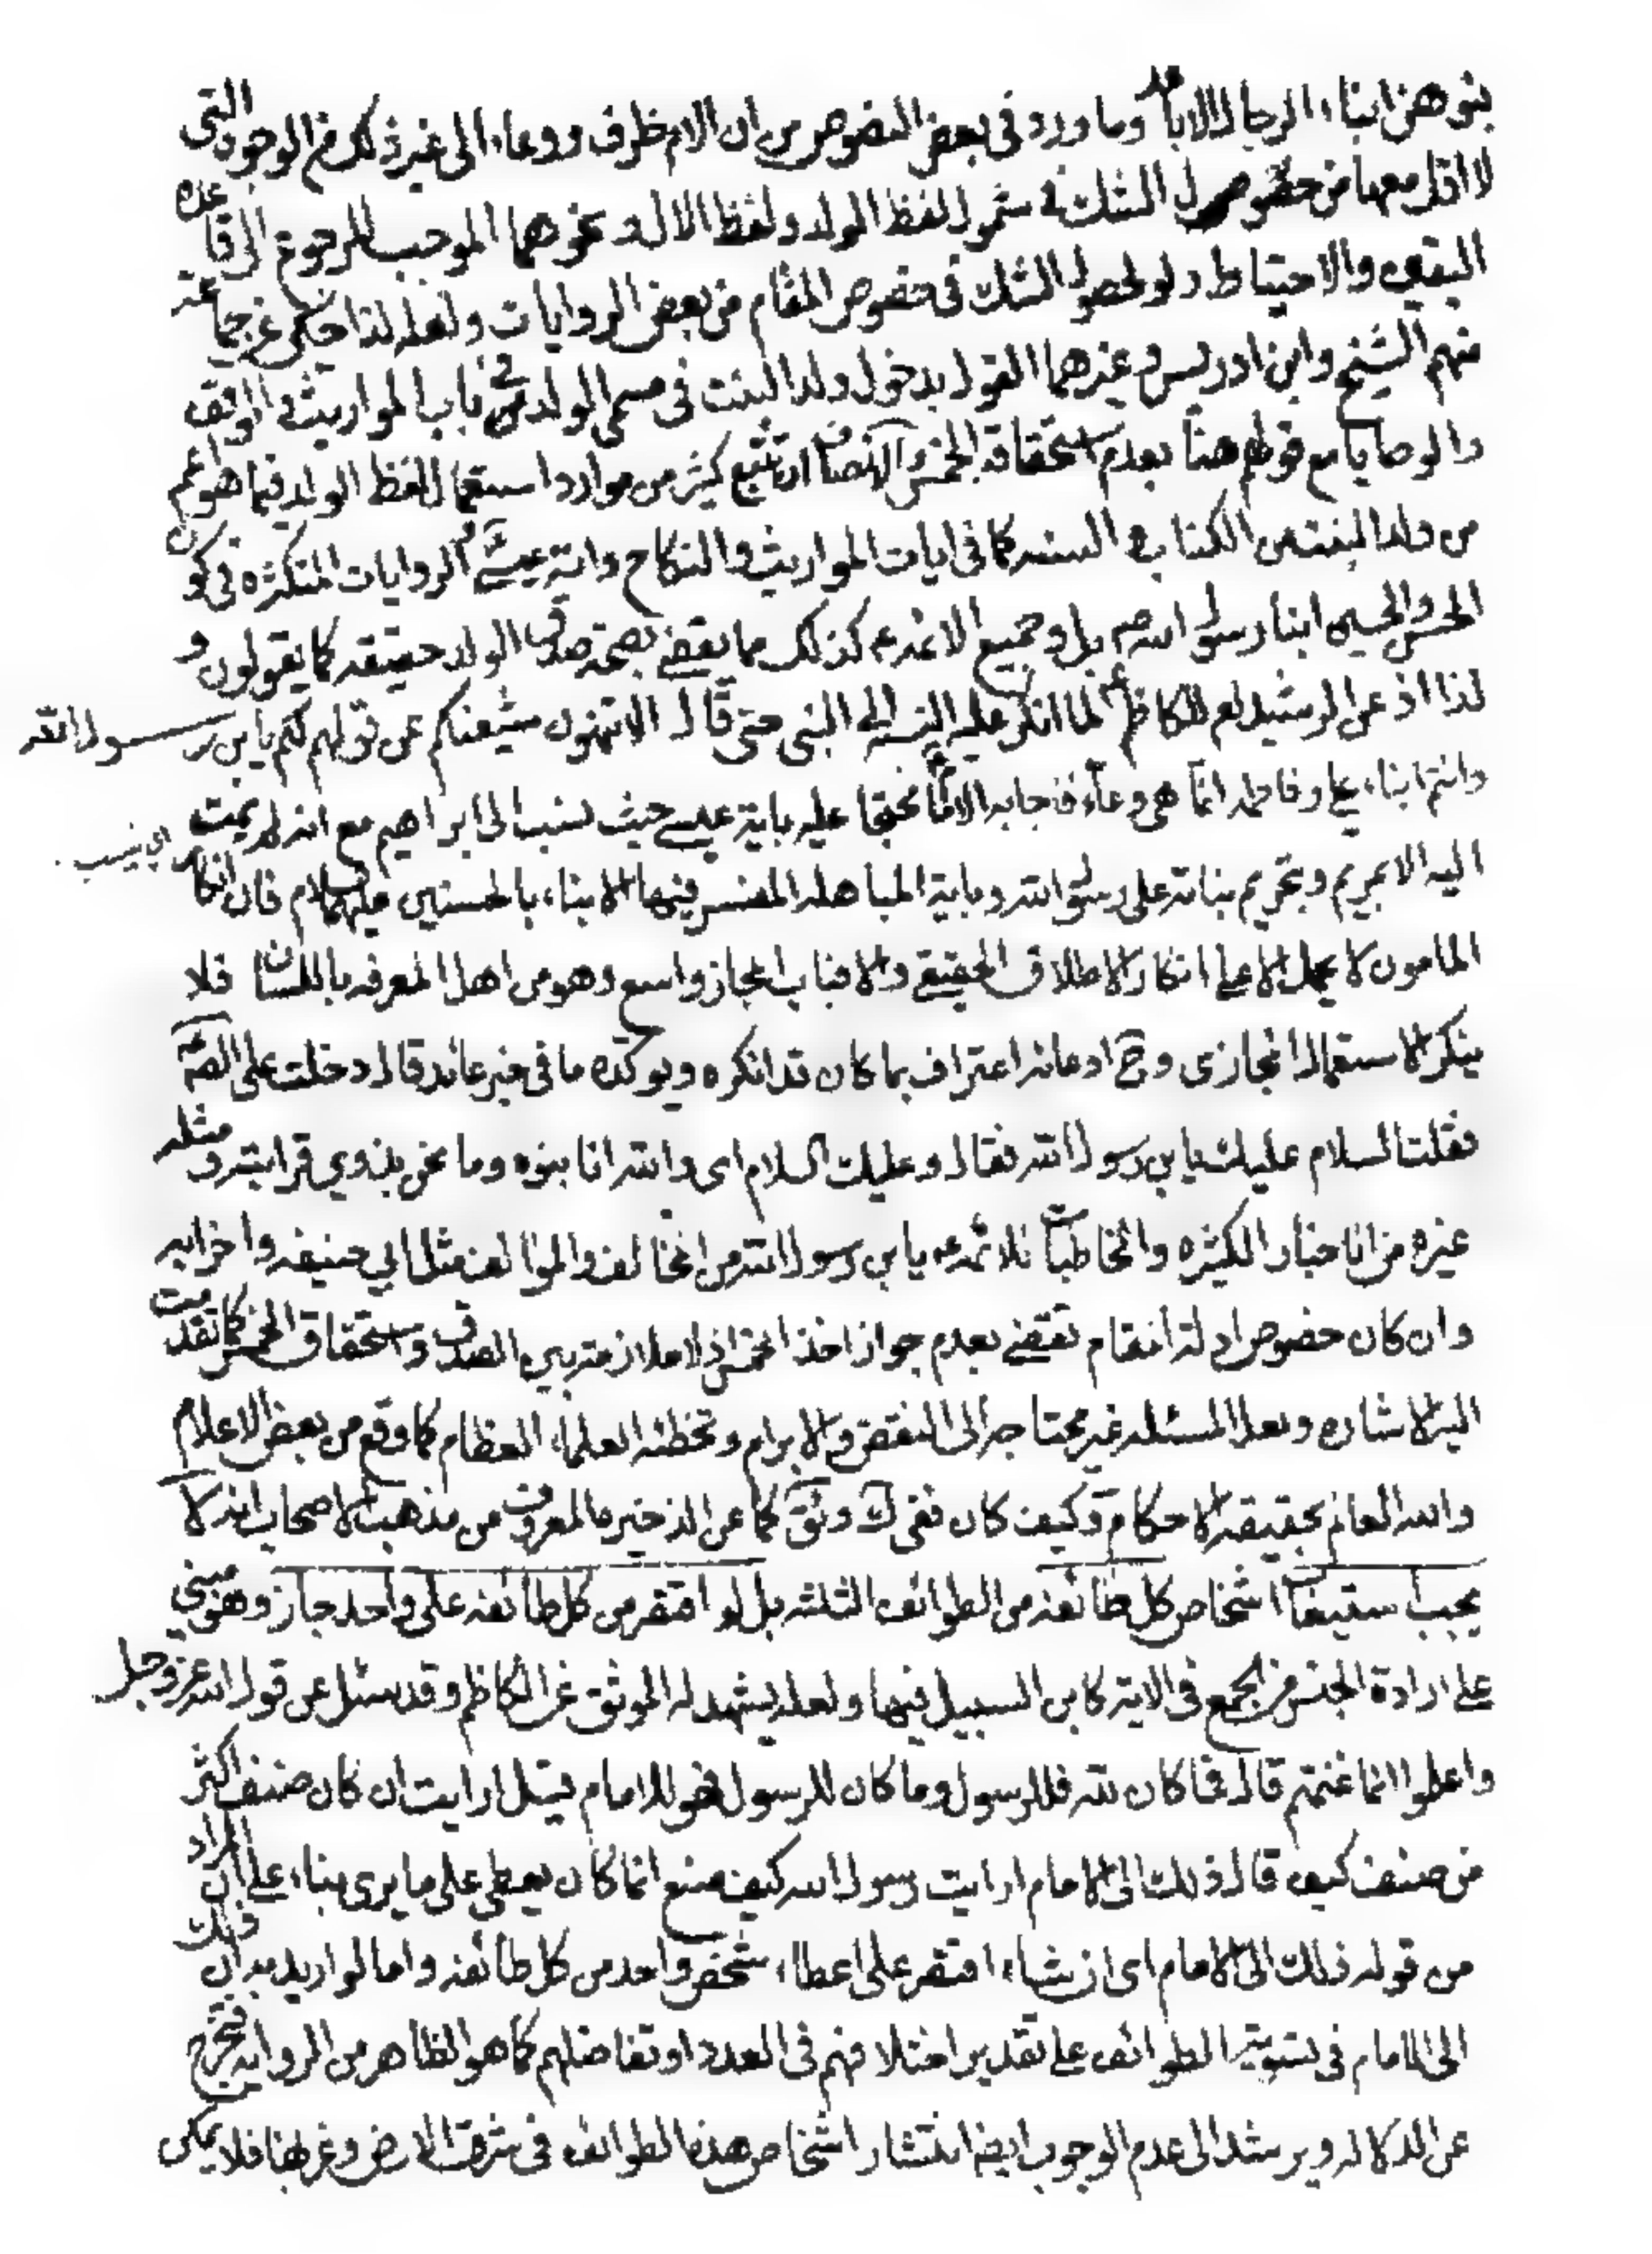 بنوهن ابناء الرجال الاباعد وما ورد في بعض النصوص من ان الام ظرف ووعاء الى غير ذلك من الوجوه التي
لا اقل معها من حصول الشك في شمول لفظ الولد ولفظ الال ونحوهما الموجب للرجوع الى قاعده
اليقين والاحتياط ولو لحصول الشك في خصوص المقام من بعض الروايات ولعله لذا حكى عن جماعته
منهم الشيخ وابن ادريس وغيرهما القول بدخول ولد البنت في مسمى الولد في باب المواريث والوقف
والوصايا مع قولهم هنا بعدم استحقاقه الخمس والانصاف ان تتبع كثير من موارد استعمال لفظ الولد فيما هو اعم
من ولد البنت من الكتاب والسنه كما في ايات المواريث والنكاح واية عيسى والروايات المتكثره في كون
الحسن والحسين ابنا رسول الله ص بل وجميع الائمه ع كذلك مما يقضي بصحة صدق الولد حقيقه كما يقولون و
لذا اذعن الرشيد لع للكاظم ع لما انكر عليه النسبه الى النبي حتى قال الا تنهون شيعتكم عن قولهم لكم يابن رسول الله
وانتم ابناء علي وفاطمه انما هي وعاء فاجابه الامام محتجا عليه باية عيسى حيث نسب الى ابراهيم مع انه لم يمت اي ينسب
اليه الا بمريم وبتحريم بناته على رسول الله وباية المباهله المفسر فيها الابناء بالحسنين عليهما السلام فان انكار
المامون لا يحمل الا على انكار الاطلاق الحقيقي والا فباب المجاز واسع وهو من اهل المعرفه باللسان فلا
ينكر الاستعمال المجازى وح ادعانه اعتراف بما كان قد انكره ويوكده ما في خبر عائد قال دخلت على الصه
فقلت السلام عليك يابن رسول الله فقال وعليك السلام اى والله انا بنوه وما نحن بذوي قرابته ومثله
غيره من الاخبار الكثيره والمخاطبات للائمه ع يابن رسول الله من المخالف والموالف مثل ابي حنيفه واضرابه
وان كان خصوص ادلة المقام تقتضي بعدم جواز اخذ الخمس اذ لا ملازمة بين الصدق واستحقاق الخمس كما تقدمت
اليه الاشاره ولعل المسئله غير محتاجه الى النقض والابرام وتخطئه العلماء العظام كما وقع من بعض الاعلام
والله العالم بحقيقه الاحكام وكيف كان ففي ك وئق كما عن الذخيره المعروف من مذهب الاصحاب انه لا
يجب استيعاب اشخاص كل طائفه من الطوائف الثلثه بل لو اقتصر من كل طائفه على واحد جاز وهو مبني
على ارادة الجنس من الجمع في الاية كابن السبيل فيها ولعله يشهد له الموثق عن الكاظم وقد سئل عن قول الله عز وجل
واعلموا انما غنمتم قال فما كان لله فللرسول وما كان للرسول فهو للامام قيل ارايت ان كان صنف اكثر
من صنف كيف قال ذلك الى الامام ارايت رسول الله كيف صنع انما كان يعطي على ما يرى بناء على ان المراد
من قوله ذلك الى الامام اى ان شاء اقتصر على اعطاء شخص واحد من كل طائفه واما لو اريد به ان ذلك
الى الامام في تسوية الطوائف على تقدير اختلافهم في العدد او تفاضلهم كما هو الظاهر من الروايه فتخرج
عن الدلاله ويرشد الى عدم الوجوب ايضا انتشار اشخاص هذه الطوائف في شرق الارض وغربها فلا يمكن